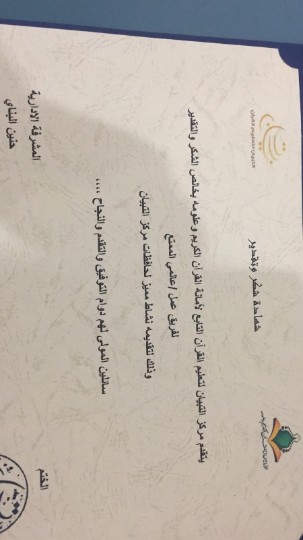 شهادة شكر وتقدير
يتقدم مركز التبيان لتعليم القرآن التابع لأمانة القرآن الكريم وعلومه بخالص الشكر والتقدير
لفريق عمل /عالمي الممتع
وذلك لتقديمه نشاط مميز لحافظات مركز التبيان
سائلين المولى لهم دوام التوفيق والتقدم والنجاح ....
الختم
المشرفة الادارية
حنين البناي